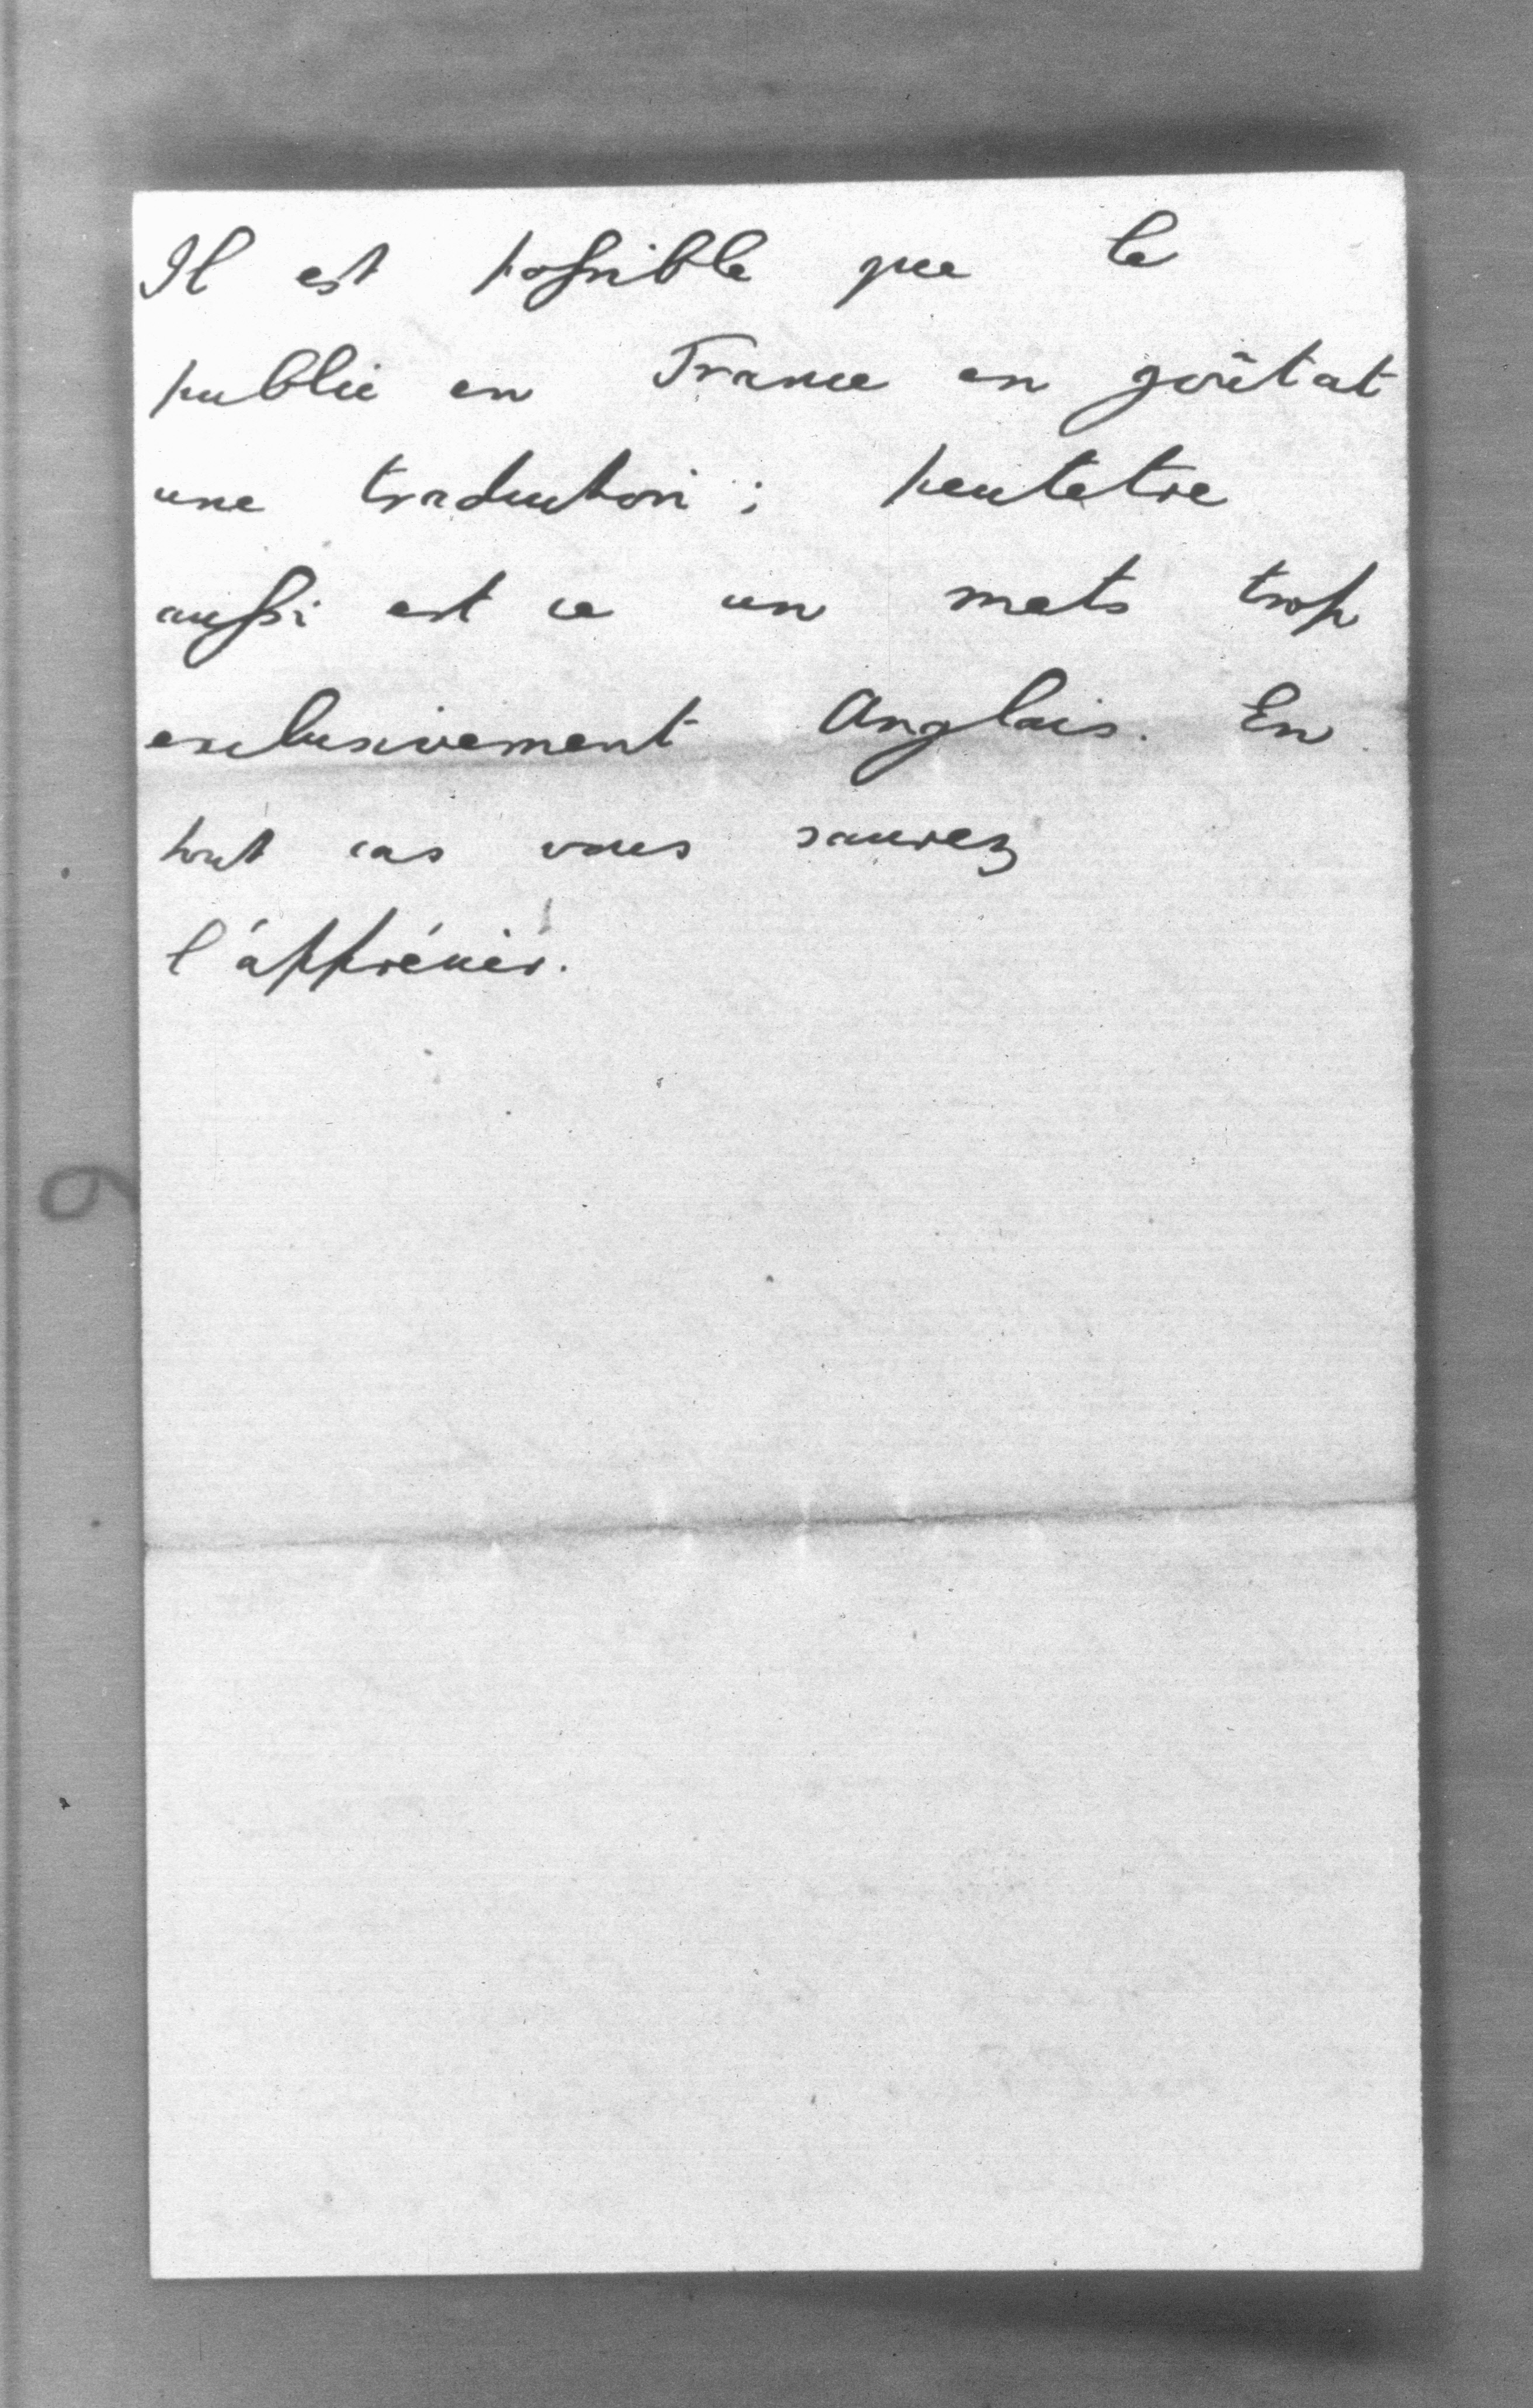 Il est possible que le
public en France en goûtat
une traduction ; peutetre
aussi est ce un mets trop
exclusivement Anglais. En
tout cas vous saurez
l'apprécier.
9